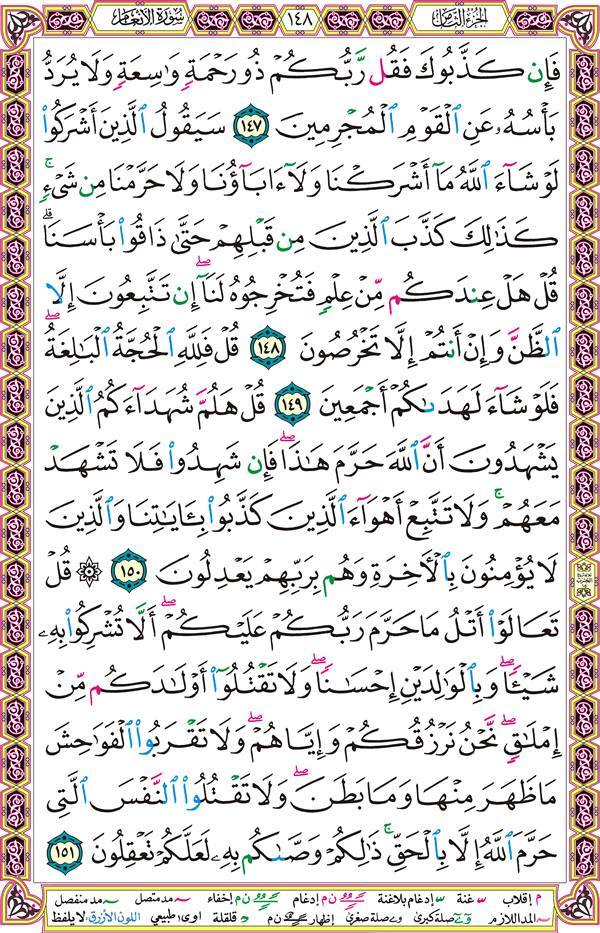 الجزء الثامن ١٤٨ سورة الأنعام
فَإِن كَذَّبُوكَ فَقُل رَّبُّكُمْ ذُو رَحْمَةٍ وَٰسِعَةٍ وَلَا يُرَدُّ
بَأْسُهُۥ عَنِ ٱلْقَوْمِ ٱلْمُجْرِمِينَ ١٤٧ سَيَقُولُ ٱلَّذِينَ أَشْرَكُوا۟
لَوْ شَآءَ ٱللَّهُ مَآ أَشْرَكْنَا وَلَآ ءَابَآؤُنَا وَلَا حَرَّمْنَا مِن شَىْءٍ ۚ
كَذَٰلِكَ كَذَّبَ ٱلَّذِينَ مِن قَبْلِهِمْ حَتَّىٰ ذَاقُوا۟ بَأْسَنَا ۗ
قُلْ هَلْ عِندَكُم مِّنْ عِلْمٍ فَتُخْرِجُوهُ لَنَآ ۖ إِن تَتَّبِعُونَ إِلَّا
ٱلظَّنَّ وَإِنْ أَنتُمْ إِلَّا تَخْرُصُونَ ١٤٨ قُلْ فَلِلَّهِ ٱلْحُجَّةُ ٱلْبَٰلِغَةُ ۖ
فَلَوْ شَآءَ لَهَدَىٰكُمْ أَجْمَعِينَ ١٤٩ قُلْ هَلُمَّ شُهَدَآءَكُمُ ٱلَّذِينَ
يَشْهَدُونَ أَنَّ ٱللَّهَ حَرَّمَ هَٰذَا ۖ فَإِن شَهِدُوا۟ فَلَا تَشْهَدْ
مَعَهُمْ ۚ وَلَا تَتَّبِعْ أَهْوَآءَ ٱلَّذِينَ كَذَّبُوا۟ بِـَٔايَٰتِنَا وَٱلَّذِينَ
لَا يُؤْمِنُونَ بِٱلْـَٔاخِرَةِ وَهُم بِرَبِّهِمْ يَعْدِلُونَ ١٥٠ ۞ قُلْ
تَعَالَوْا۟ أَتْلُ مَا حَرَّمَ رَبُّكُمْ عَلَيْكُمْ ۖ أَلَّا تُشْرِكُوا۟ بِهِۦ
شَيْـًٔا ۖ وَبِٱلْوَٰلِدَيْنِ إِحْسَٰنًا ۖ وَلَا تَقْتُلُوٓا۟ أَوْلَٰدَكُم مِّنْ
إِمْلَٰقٍ ۖ نَّحْنُ نَرْزُقُكُمْ وَإِيَّاهُمْ ۖ وَلَا تَقْرَبُوا۟ ٱلْفَوَٰحِشَ
مَا ظَهَرَ مِنْهَا وَمَا بَطَنَ ۖ وَلَا تَقْتُلُوا۟ ٱلنَّفْسَ ٱلَّتِى
حَرَّمَ ٱللَّهُ إِلَّا بِٱلْحَقِّ ۚ ذَٰلِكُمْ وَصَّىٰكُم بِهِۦ لَعَلَّكُمْ تَعْقِلُونَ ١٥١
م إقلاب غنة إدغام بلاغنة ن م إدغام ن م إخفاء مد متصل مد منفصل
المد اللازم صلة كبرى صلة صغرى إظهار ن م قلقلة اوى طبيعي اللون الأزرق: لا يلفظ